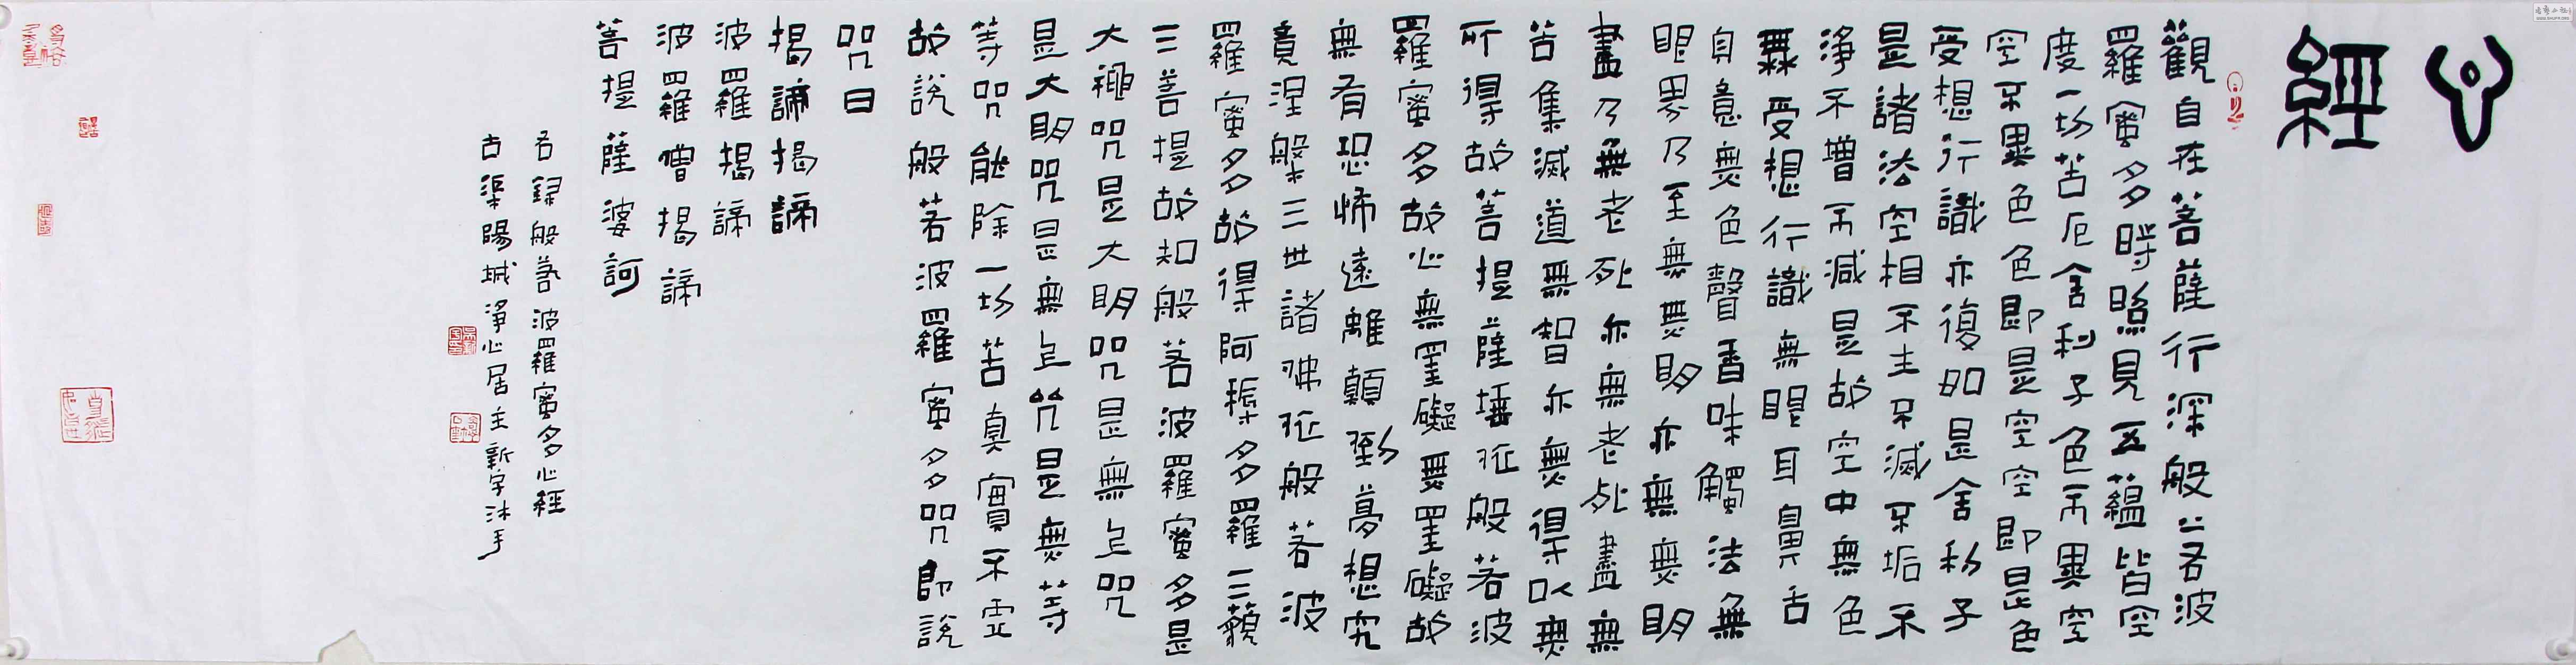 心經
觀自在菩薩行深般若波
羅蜜多時照見五蘊皆空
度一切苦厄舍利子色不異空
空不異色色即是空空即是色
受想行識亦復如是舍利子
是諸法空相不生不滅不垢不
淨不增不減是故空中無色
無受想行識無眼耳鼻舌
身意無色聲香味觸法無
眼界乃至無無明亦無無明
盡乃無老死亦無老死盡無
苦集滅道無智亦無得以無
所得故菩提薩埵依般若波
羅蜜多故心無罣礙無罣礙故
無有恐怖遠離顛倒夢想究
竟涅槃三世諸佛依般若波
羅蜜多故得阿耨多羅三藐
三菩提故知般若波羅蜜多是
大神咒是大明咒是無上咒
是大明咒是無上咒是無等
等咒能除一切苦真實不虛
故說般若波羅蜜多咒即說
咒曰
揭諦揭諦
波羅揭諦
波羅僧揭諦
菩提薩婆訶
右録般若波羅蜜多心經
古渠陽城淨心居主新宇沐手